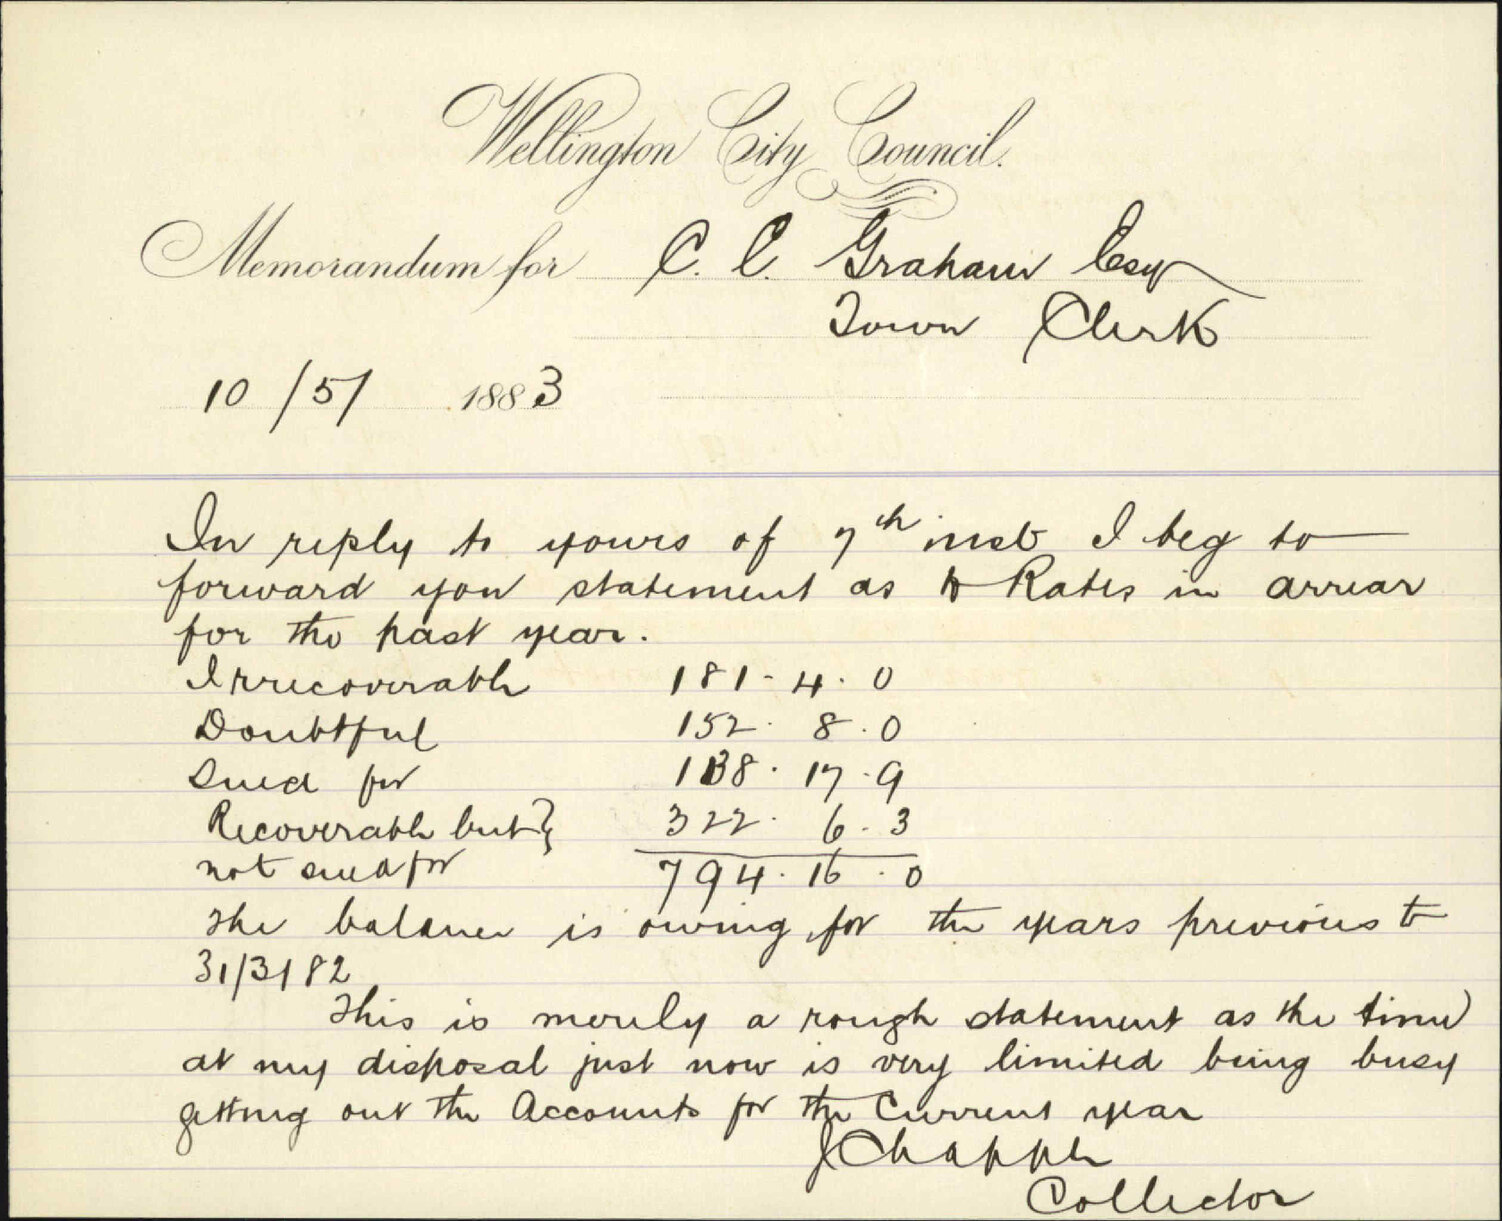 Wellington City Council.
Memorandum for C. C. Graham Esq
Town Clerk
10/5/ 1883
In reply to yours of 7th inst I beg to
forward you statement as to Rates in arrear
for the past year.
Irrecoverable 181. 4. 0
Doubtful 152. 8. 0
Sued for 138. 17. 9
Recoverable but } 322. 6. 3
not sued for 794. 16. 0
The balance is owing for the years previous to
31/3/82
This is merely a rough statement as the time
at my disposal just now is very limited being busy
getting out the Accounts for the Current year
J Chapple
Collector